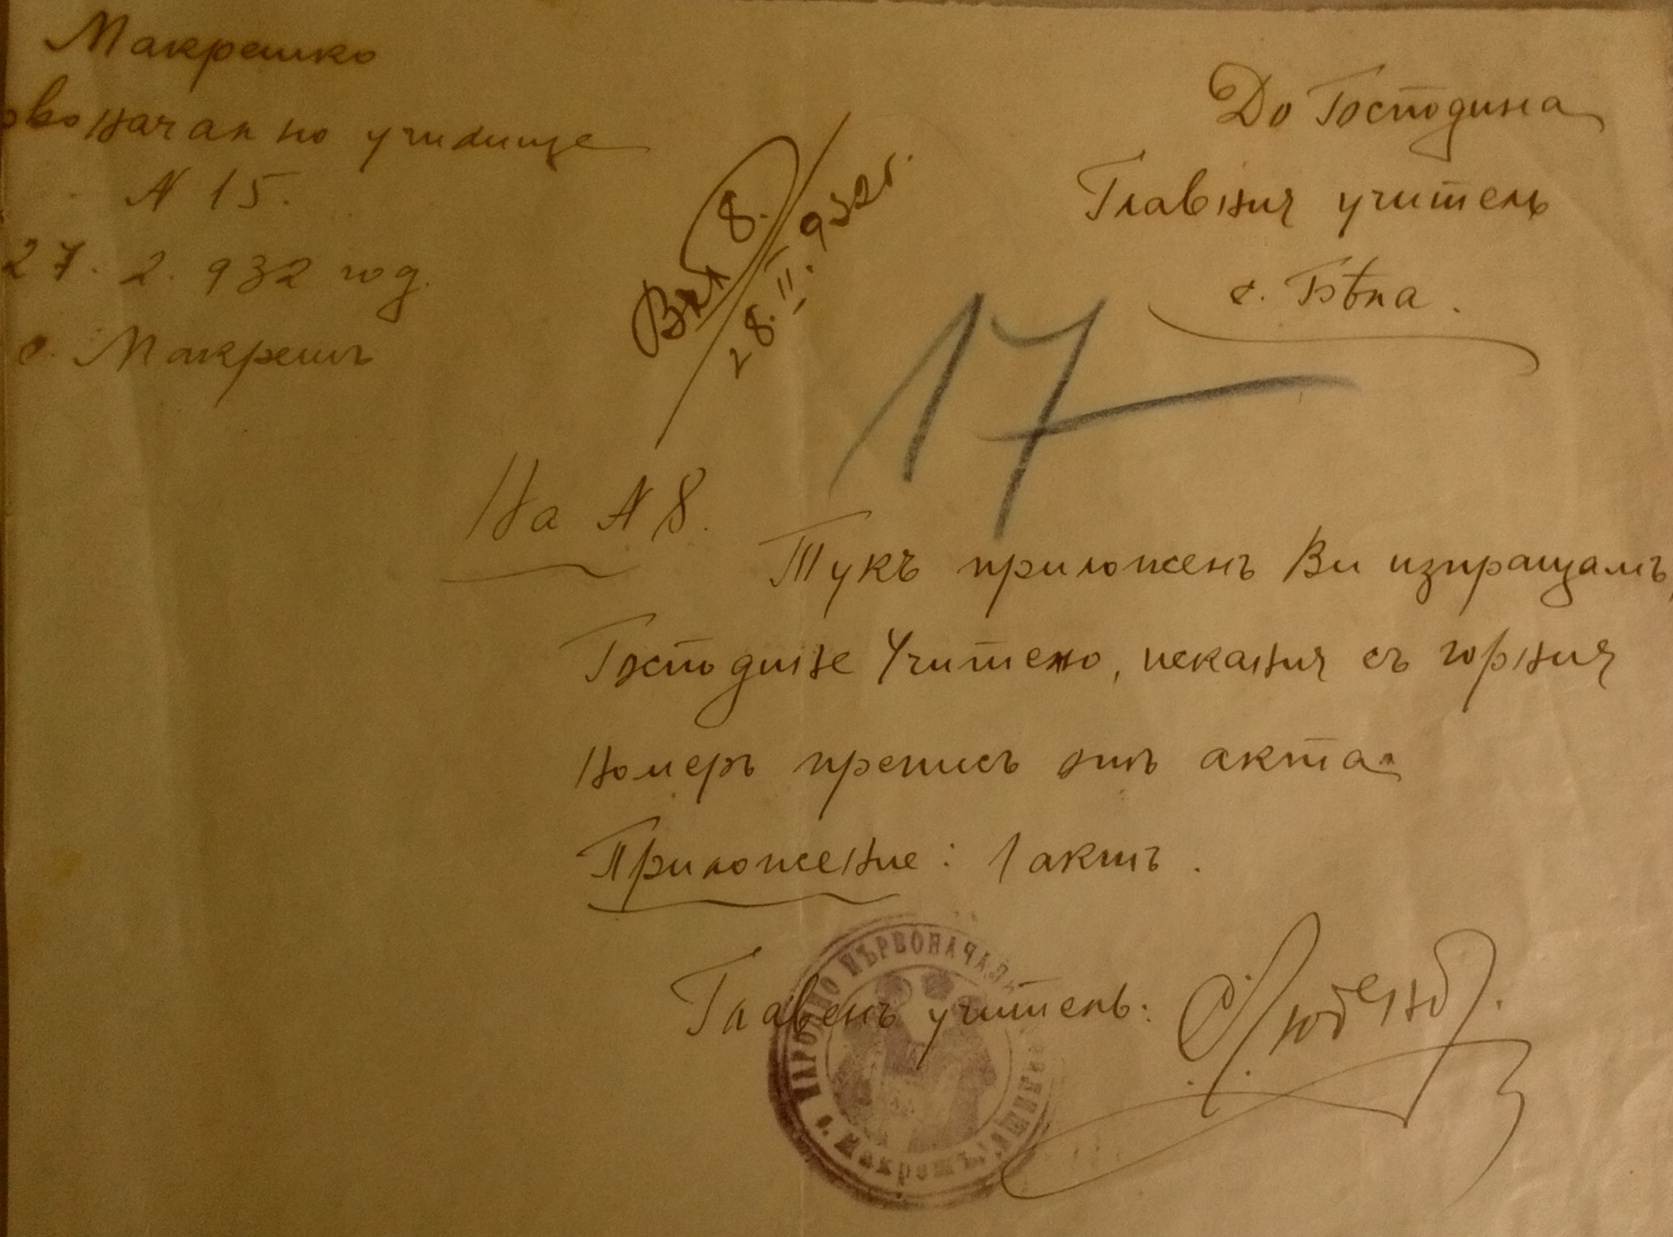 Макрешко
рвоначално училище
N 15.
27. 2. 932 год.
с. Макрешъ
Вх. 8.
28. II. 932 г.
До Господина
Главния учитель
с. Бѣла.
17
На N 8.
Тукъ приложенъ Ви изпращамъ,
Господине Учителю, искания съ горния
номеръ преписъ отъ акта
Приложение: 1 актъ.
Главенъ учитель:
НАРОДНО ПЪРВОНАЧАЛНО УЧИЛИЩЕ
с. Макрешъ